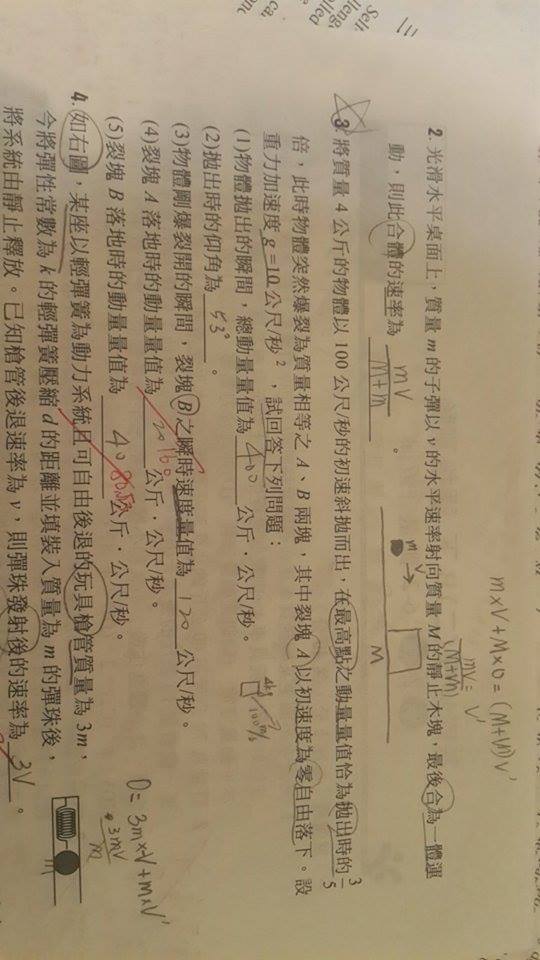 三
m×V+M×0=(M+m)V'
mV/(M+m)=V'
2. 光滑水平桌面上，質量 m 的子彈以 v 的水平速率射向質量 M 的靜止木塊，最後合為一體運
動，則此合體的速率為 mV/(M+m) 。
m V
M
3. 將質量 4 公斤的物體以 100 公尺/秒的初速斜拋而出，在最高點之動量量值恰為拋出時的 3/5
倍，此時物體突然爆裂為質量相等之 A、B 兩塊，其中裂塊 A 以初速度為零自由落下。設
重力加速度 g =10 公尺/秒²，試回答下列問題：
(1)物體拋出的瞬間，總動量量值為 400 公斤．公尺/秒。
4kg
100m/s
(2)拋出時的仰角為 53° 。
(3)物體剛爆裂開的瞬間，裂塊 B 之瞬時速度量值為 120 公尺/秒。
(4)裂塊 A 落地時的動量量值為 160 公斤．公尺/秒。
(5)裂塊 B 落地時的動量量值為 40 公斤．公尺/秒。
4. 如右圖，某座以輕彈簧為動力系統且可自由後退的玩具槍管質量為 3m，
今將彈性常數為 k 的輕彈簧壓縮 d 的距離並填裝入質量為 m 的彈珠後，
將系統由靜止釋放。已知槍管後退速率為 v，則彈珠發射後的速率為 3V 。
0=3m×-V+m×V'
3mV
m
m